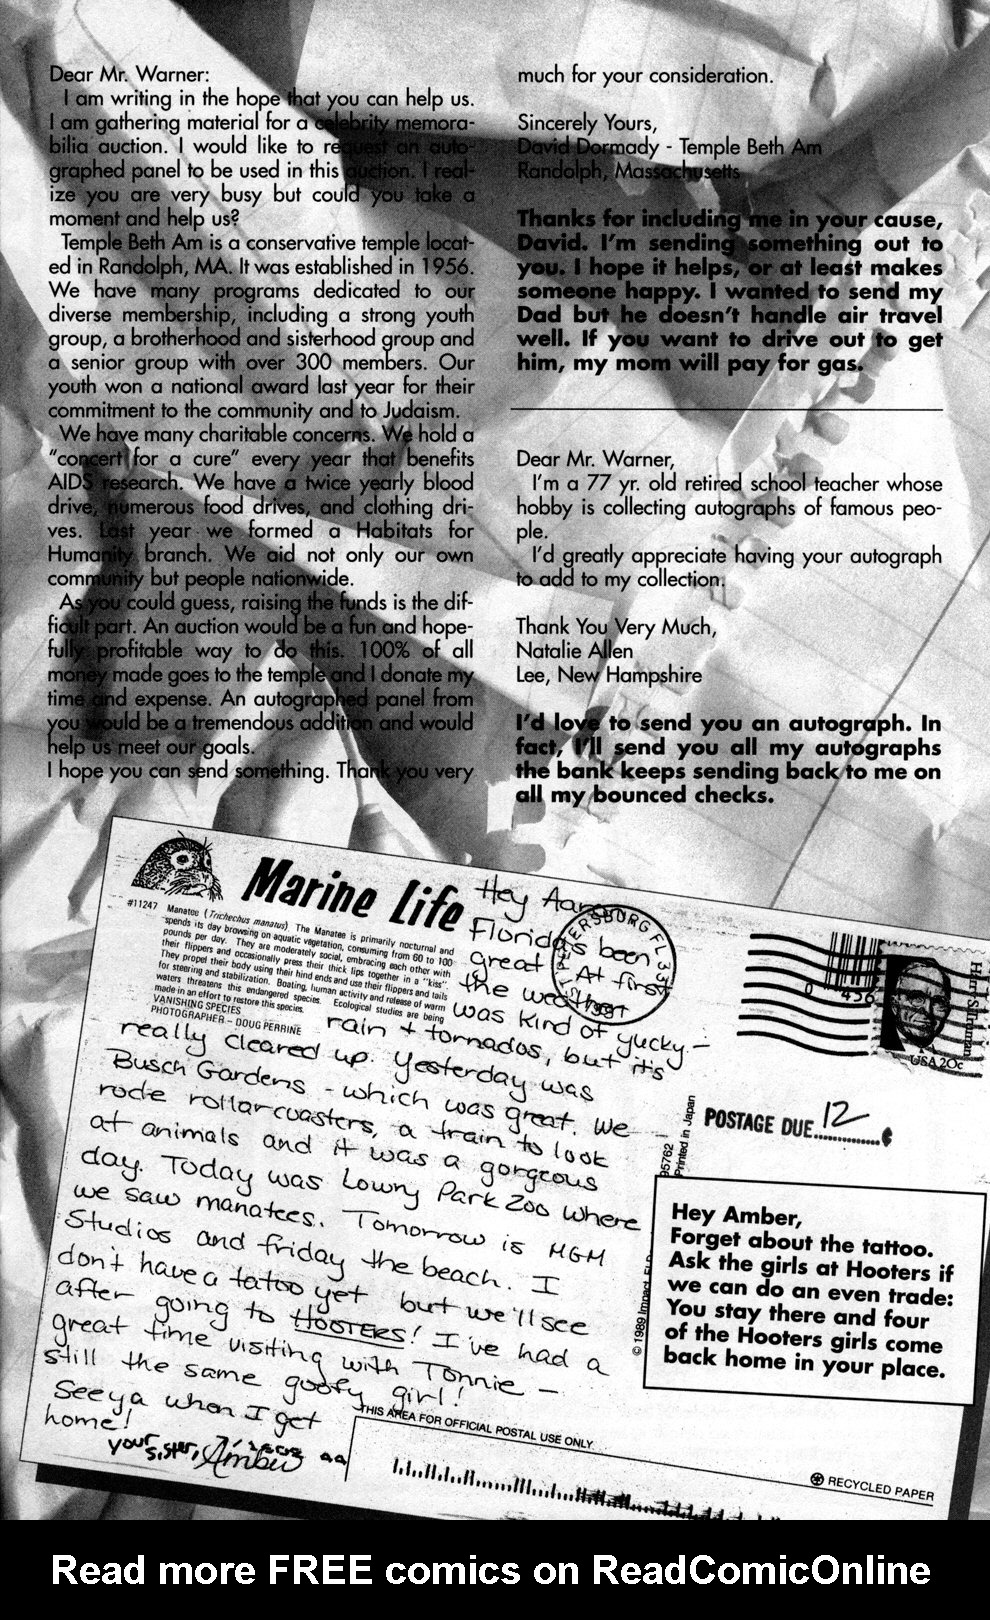 Dear Mr. Warner:
I am writing in the hope that you can help us.
I am gathering material for a celebrity memora-
bilia auction. I would like to request an auto-
graphed panel to be used in this auction. I real-
ize you are very busy but could you take a
moment and help us?
Temple Beth Am is a conservative temple locat-
ed in Randolph, MA. It was established in 1956.
We have many programs dedicated to our
diverse membership, including a strong youth
group, a brotherhood and sisterhood group and
a senior group with over 300 members. Our
youth won a national award last year for their
commitment to the community and to Judaism.
We have many charitable concerns. We hold a
"concert for a cure" every year that benefits
AIDS research. We have a twice yearly blood
drive, numerous food drives, and clothing dri-
ves. Last year we formed a Habitats for
Humanity branch. We aid not only our own
community but people nationwide.
As you could guess, raising the funds is the dif-
ficult part. An auction would be a fun and hope-
fully profitable way to do this. 100% of all
money made goes to the temple and I donate my
time and expense. An autographed panel from
you would be a tremendous addition and would
help us meet our goals.
I hope you can send something. Thank you very
much for your consideration.
Sincerely Yours,
David Dormady - Temple Beth Am
Randolph, Massachusetts
Thanks for including me in your cause,
David. I'm sending something out to
you. I hope it helps, or at least makes
someone happy. I wanted to send my
Dad but he doesn't handle air travel
well. If you want to drive out to get
him, my mom will pay for gas.
Dear Mr. Warner,
I'm a 77 yr. old retired school teacher whose
hobby is collecting autographs of famous peo-
ple.
I'd greatly appreciate having your autograph
to add to my collection.
Thank You Very Much,
Natalie Allen
Lee, New Hampshire
I'd love to send you an autograph. In
fact, I'll send you all my autographs
the bank keeps sending back to me on
all my bounced checks.
Marine Life
#11247 Manatee (Trichechus manatus). The Manatee is primarily nocturnal and
spends its day browsing on aquatic vegetation, consuming from 60 to 100
pounds per day. They are moderately social, embracing each other with
their flippers and occasionally press their thick lips together in a "kiss".
They propel their body using their hind ends and use their flippers and tails
for steering and stabilization. Boating, human activity and release of warm
waters threatens this endangered species. Ecological studies are being
made in an effort to restore this species.
VANISHING SPECIES
PHOTOGRAPHER - DOUG PERRINE
Hey Aaron
Florida's been
great! At first
the weather
was kind of yucky -
rain + tornados, but it's
really cleared up. Yesterday was
Busch Gardens - which was great. We
rode rollarcoasters, a train to look
at animals and it was a gorgeous
day. Today was Lowry Park Zoo where
we saw manatees. Tomorrow is MGM
Studios and friday the beach. I
don't have a tatoo yet but we'll see
after going to HOOTERS! I've had a
great time visiting with Tonnie -
still the same goofy girl!
See ya when I get
home!
your sister,
Amber
ST PETERSBURG FL 337
1997
0 456
Harry S. Truman
USA 20c
POSTAGE DUE 12 ¢
95762
Printed in Japan
© 1989 Impact
Hey Amber,
Forget about the tattoo.
Ask the girls at Hooters if
we can do an even trade:
You stay there and four
of the Hooters girls come
back home in your place.
THIS AREA FOR OFFICIAL POSTAL USE ONLY
RECYCLED PAPER
Read more FREE comics on ReadComicOnline